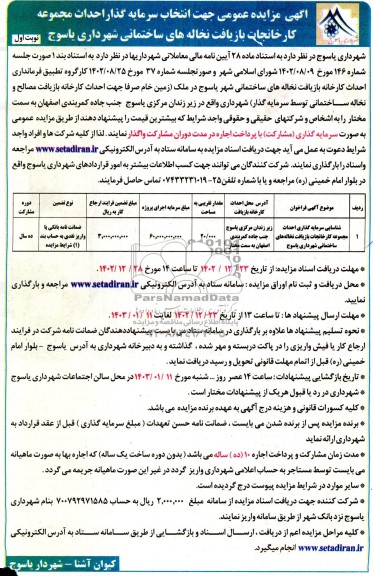 آگهی مزایده عمومی جهت انتخاب سرمایه گذار احداث مجموعه
کارخانجات بازیافت نخاله های ساختمانی شهرداری یاسوج
نوبت اول
شهرداری یاسوج در نظر دارد به استناد ماده ۲۸ آیین نامه مالی معاملاتی شهرداریها در نظر دارد به استناد بند ۱ صورت جلسه
شماره ۱۴۶ مورخ ۱۴۰۲/۰۸/۰۹ شورای اسلامی شهر و صورتجلسه شماره ۳۷ مورخ ۱۴۰۲/۰۸/۲۵ کارگروه تطبیق فرمانداری
احداث کارخانه بازیافت نخاله های ساختمانی شهر یاسوج در ملک (زمین خام صرفا جهت احداث کارخانه بازیافت مصالح و
نخاله ساختمانی توسط سرمایه گذار) شهرداری واقع در زیر زندان مرکزی یاسوج جنب جاده کمربندی اصفهان به سمت
مختار را به اشخاص و شرکتهای حقیقی و حقوقی واجد شرایط که بیشترین قیمت را پیشنهاد دهند از طریق مزایده عمومی
به صورت سرمایه گذاری (مشارکت) با پرداخت اجاره در مدت دوران مشارکت واگذار نمایند. لذا از کلیه شرکت ها و افراد واجد
شرایط دعوت به عمل می آید جهت دریافت اسناد مزایده به سامانه ستاد به آدرس الکترونیکی www.setadiran.ir مراجعه
واسناد را بارگذاری نمایند. شرکت کنندگان می توانند جهت کسب اطلاعات بیشتر به امور قراردادهای شهرداری یاسوج واقع
در بلوار امام خمینی (ره) مراجعه و یا با شماره تلفن ۲۵-۰۷۴۳۳۲۳۱۰۱۹ تماس حاصل فرمایند.
ردیف موضوع آگهی فراخوان آدرس محل احداث کارخانه بازیافت مقدار تقریبی به مساحت مبلغ سرمایه اجرای پروژه مبلغ تضمین فرایند ارجاع کار به ریال نوع تضمین دوره مشارکت
۱ شناسایی سرمایه گذاری احداث مجموعه کارخانجات بازیافت نخاله های ساختمانی شهرداری یاسوج زیر زندان مرکزی یاسوج جنب جاده کمربندی اصفهان به سمت مختار ۲۰/۰۰۰ ۶۰,۰۰۰,۰۰۰,۰۰۰ ۳,۰۰۰,۰۰۰,۰۰۰ ضمانت نامه بانکی یا واریز نقدی به حساب بند (۱) شرایط مزایده ده سال
* مهلت دریافت اسناد مزایده: از تاریخ ۲۳/ ۱۲/ ۱۴۰۲ تا ساعت ۱۴ مورخ ۲۸/ ۱۲/ ۱۴۰۲.
* محل دریافت و ثبت نام اوراق مزایده : سامانه ستاد به آدرس الکترونیکی www.setadiran.ir مراجعه و بارگذاری
نمایید.
* مهلت ارسال پیشنهاد ها : تا ساعت ۱۳ از تاریخ ۲۳/ ۱۲/ ۱۴۰۲ لغایت ۱۱/ ۰۱/ ۱۴۰۳
* نحوه تسلیم پیشنهاد ها علاوه بر بارگذاری در سامانه ستاد می بایست پیشنهاددهندگان ضمانت نامه شرکت در فرایند
ارجاع کار یا فیش واریزی را در پاکت دربسته و مهر شده ، گذاشته و به دبیرخانه شهرداری به آدرس یاسوج – بلوار امام
خمینی (ره) قبل از اتمام مهلت قانونی تحویل و رسید دریافت نماید.
* تاریخ بازگشایی پیشنهادات: ساعت ۱۴ عصر روز ... شنبه مورخ ۱۱/ ۰۱/ ۱۴۰۳ در محل سالن اجتماعات شهرداری یاسوج
* شهرداری در رد یا قبول هریک از پیشنهادات مختار است .
* کلیه کسورات قانونی و هزینه درج آگهی به عهده برنده مزایده می باشد.
* برنده مزایده پس از برنده شدن می بایست ، ضمانت نامه حسن تعهدات ( مبلغ سرمایه گذاری ) قبل از عقد قرارداد به
شهرداری ارائه نماید
* مدت زمان مشارکت و پرداخت اجاره ۱۰ (ده ) ساله می باشد ( بدون دوره ساخت یک ساله) که اجاره بها به صورت ماهیانه
می بایست توسط مستاجر به حساب اعلامی شهرداری واریز گردد در غیر این صورت ماهیانه جریمه می گردد.
* سایر موارد در شرایط مزایده پیوست درج گردیده است.
* شرکت کننده جهت دریافت اسناد مزایده از سامانه مبلغ ۲,۰۰۰,۰۰۰ ریال به حساب ۷۰۰۷۹۲۹۷۱۵۸۵ بنام شهرداری
یاسوج نزد بانک شهر از طریق سامانه واریز نمایند.
* کلیه مراحل مزایده اعم از دریافت ، ارسال اسناد و بازگشایی از طریق سامانه ستاد به آدرس الکترونیکی
www.setadiran.ir انجام میگیرد.
کیوان آشنا – شهردار یاسوج